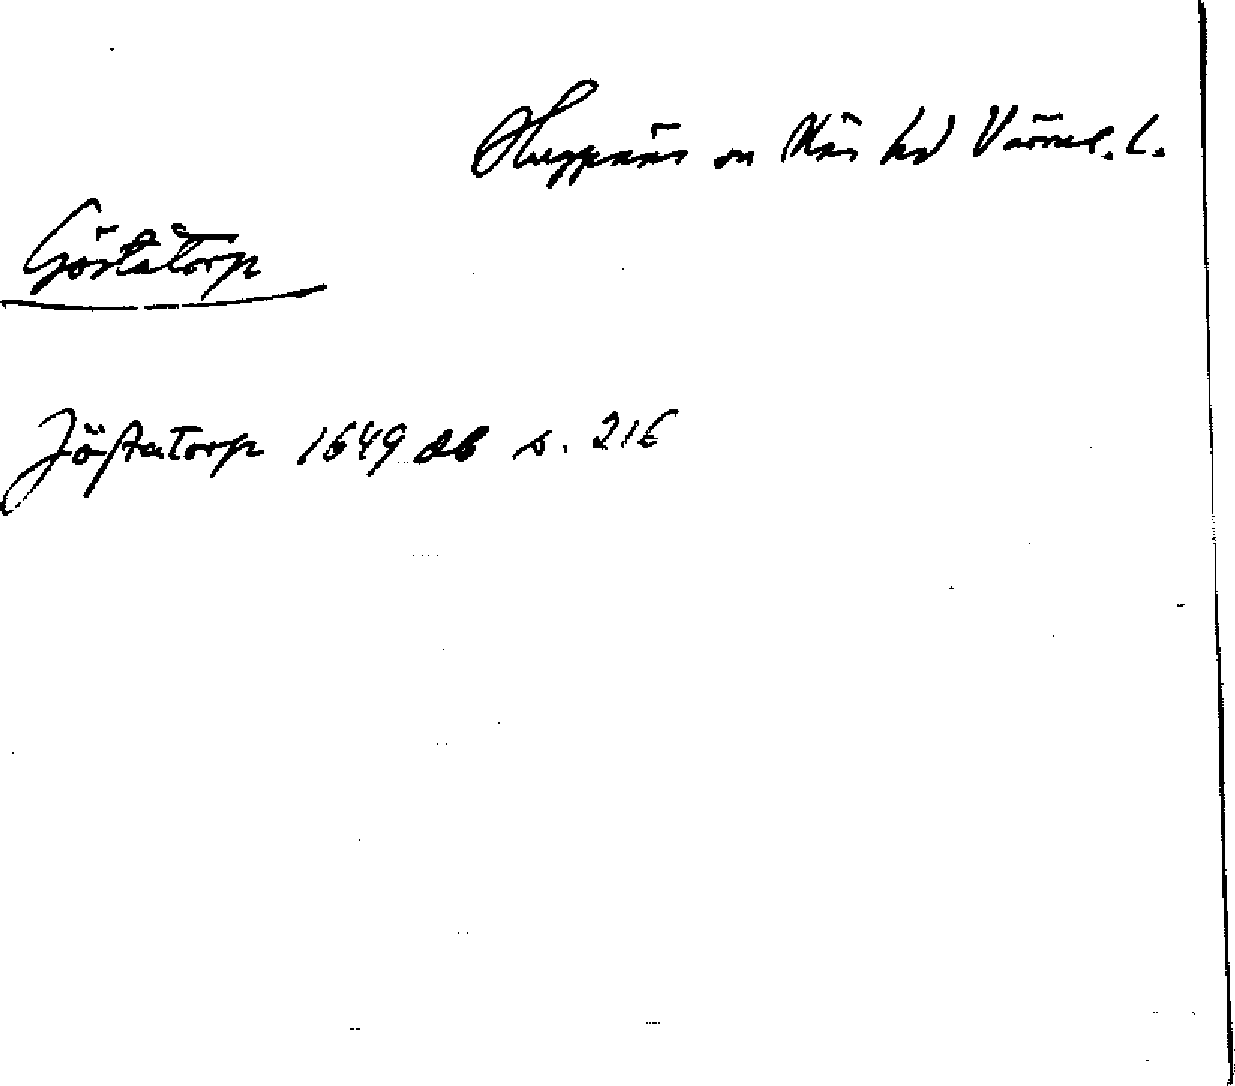 Huggenäs sn Näs hd Värml. l.
Göstatorp
Jöstatorp 1649 db s. 216